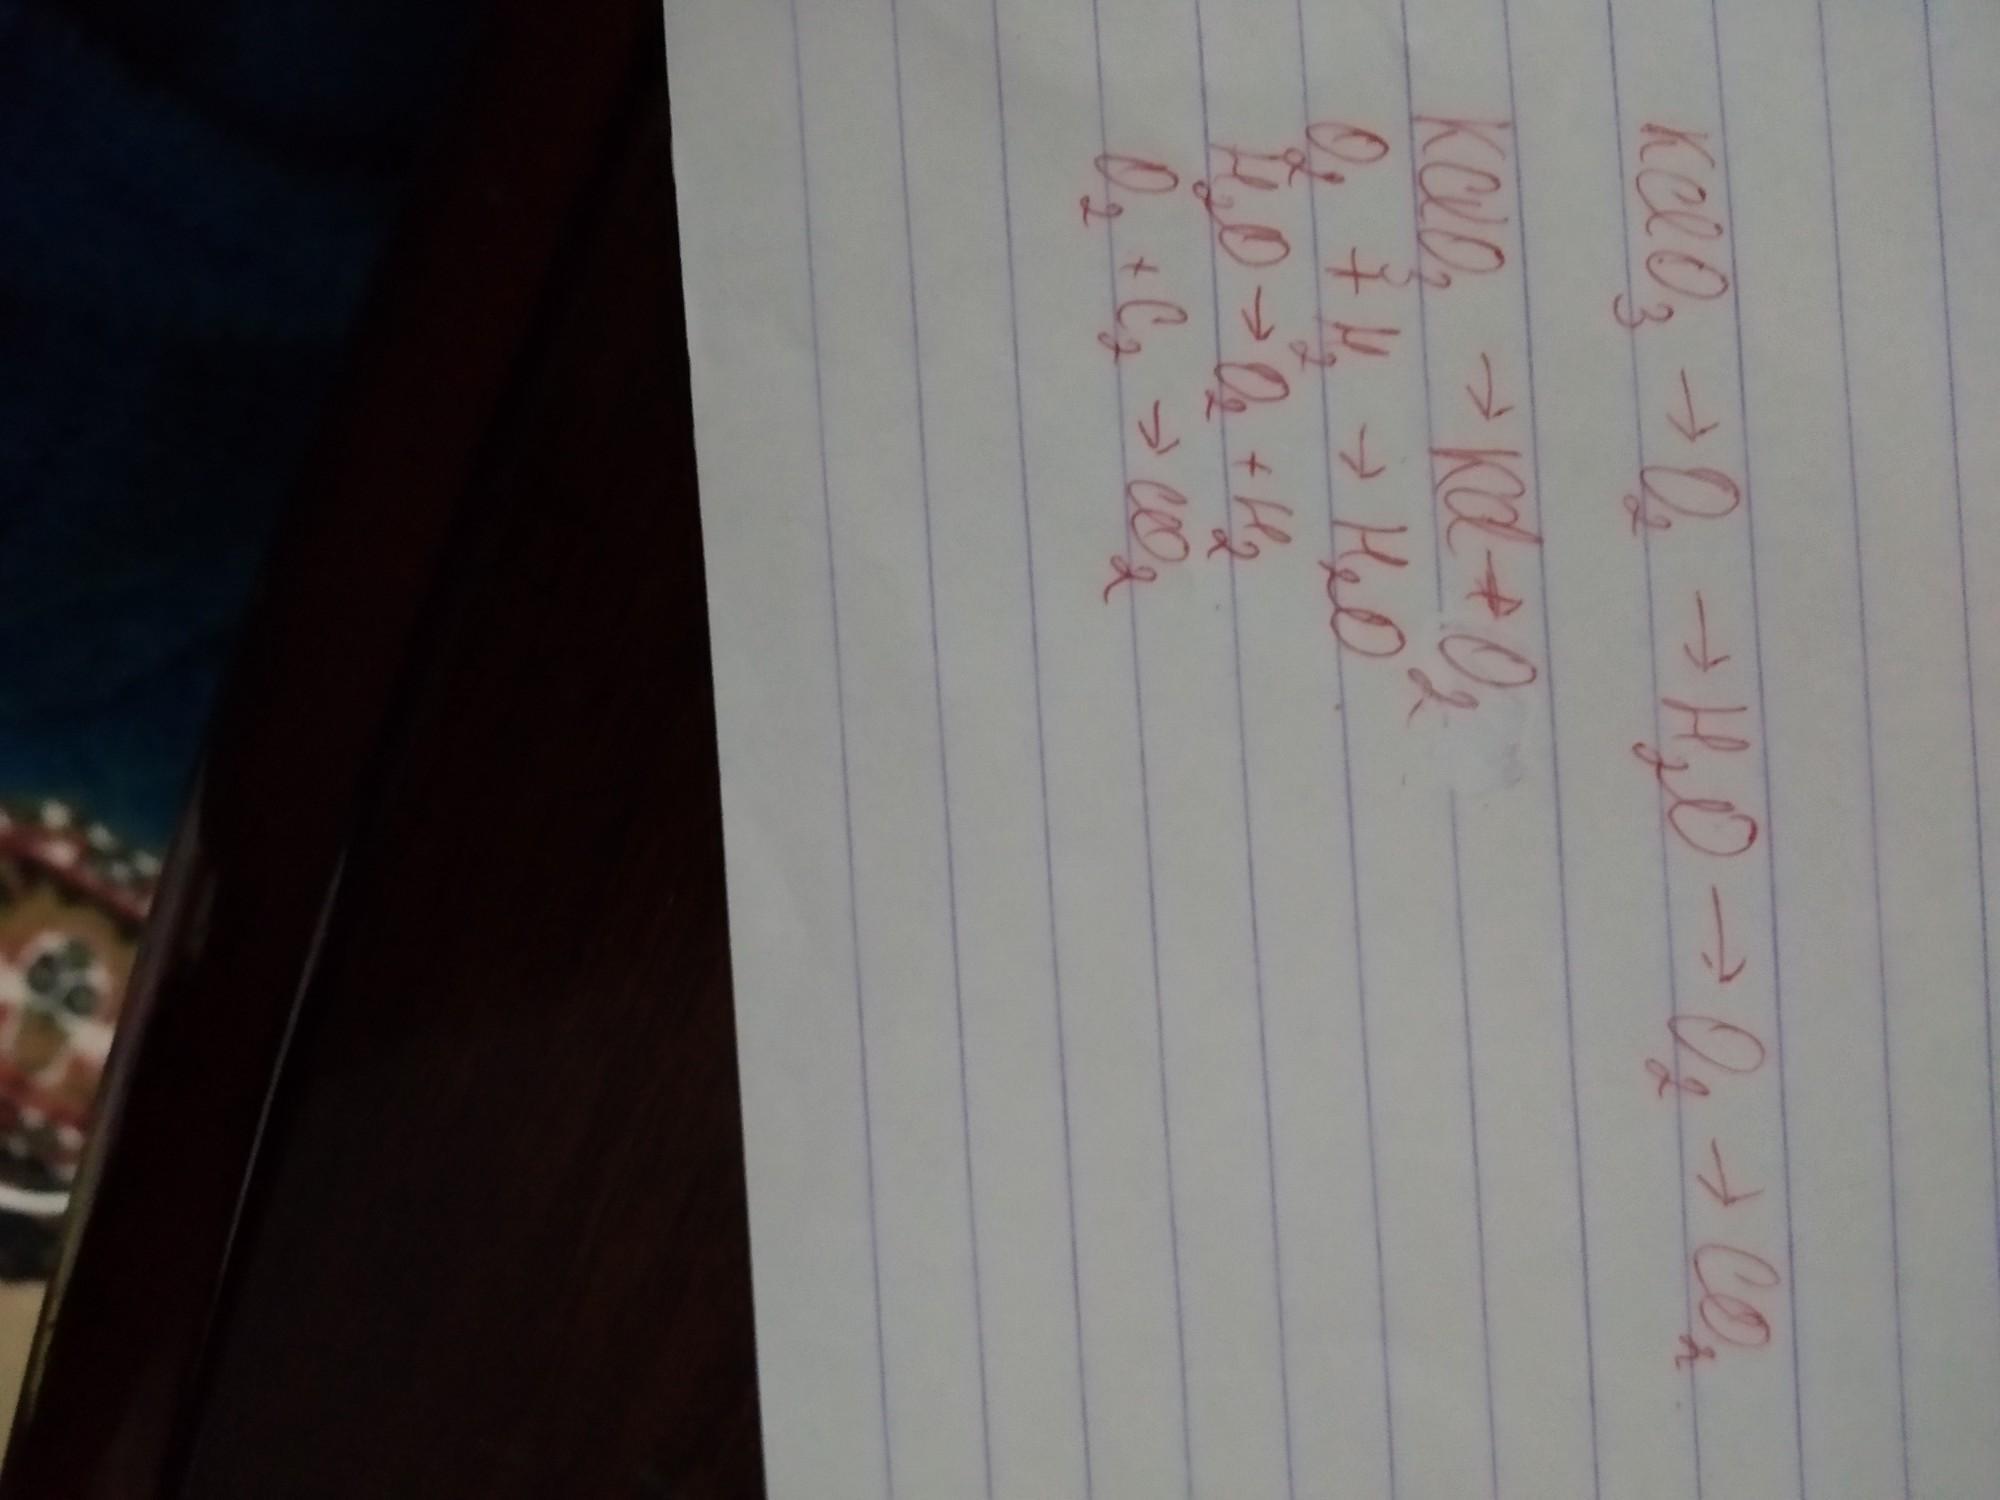 KClO₃ → O₂ → H₂O → O₂ → CO₂
KClO₃ → KCl + O₂
O₂ + H₂ → H₂O
H₂O → O₂ + H₂
O₂ + C₂ → CO₂